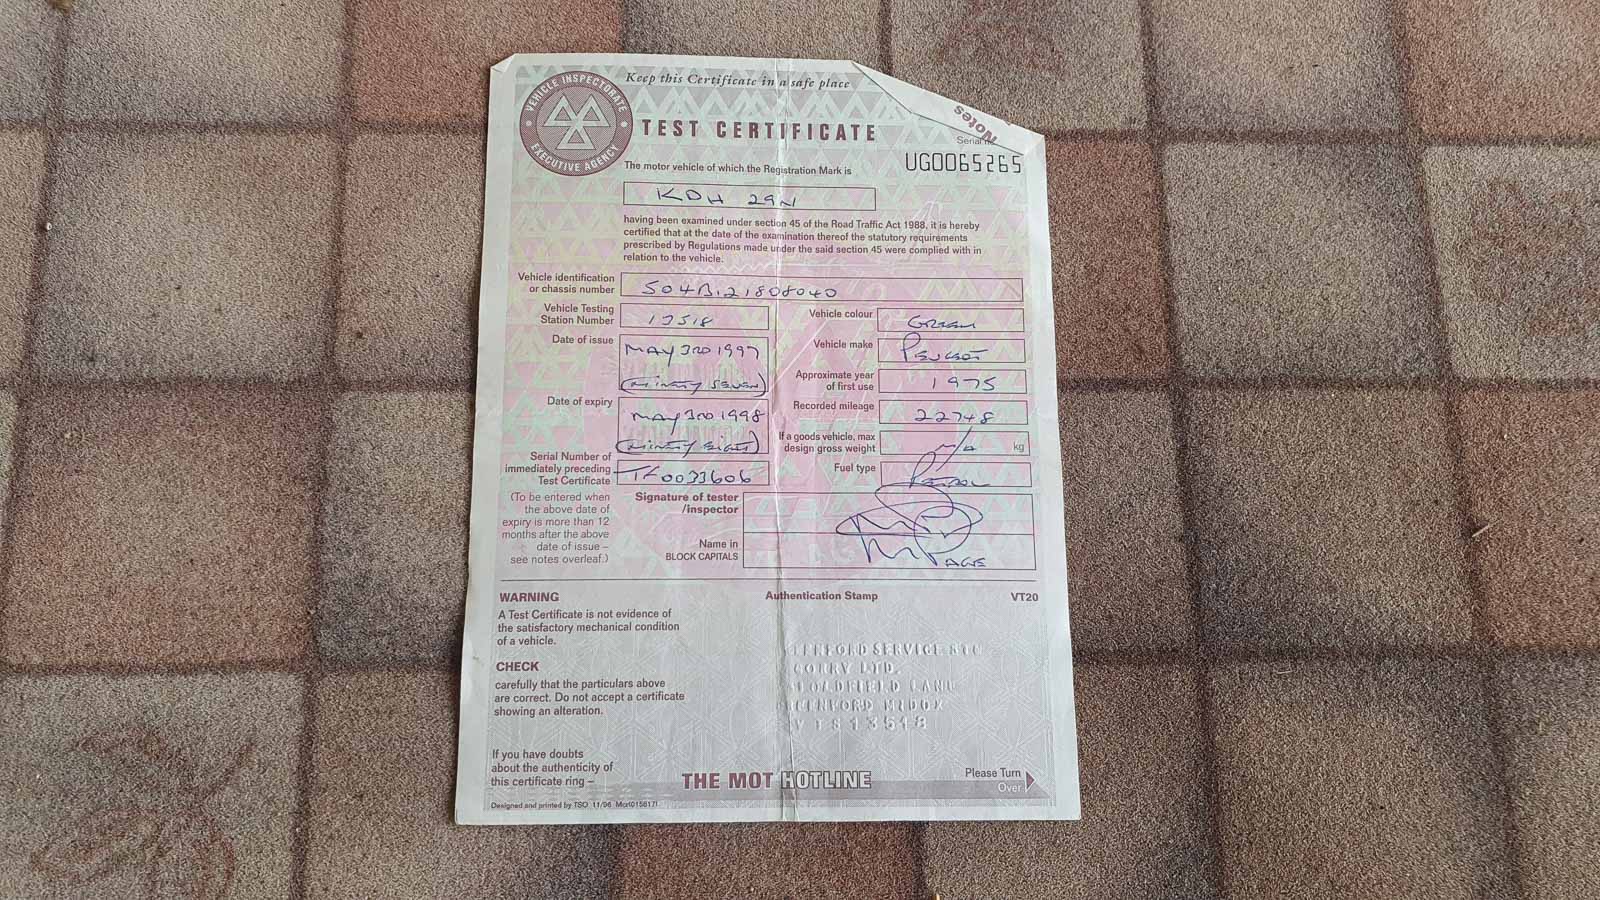 VEHICLE INSPECTORATE
EXECUTIVE AGENCY
Keep this Certificate in a safe place
Notes
TEST CERTIFICATE
Serial
UG0065265
The motor vehicle of which the Registration Mark is
KDH 29N
having been examined under section 45 of the Road Traffic Act 1988, it is hereby
certified that at the date of the examination thereof the statutory requirements
prescribed by Regulations made under the said section 45 were complied with in
relation to the vehicle.
Vehicle identification
or chassis number
504B121808040
Vehicle Testing
Station Number
13518
Vehicle colour
Green
Date of issue
MAY 3RD 1997
(NINETY SEVEN)
Vehicle make
PEUGEOT
Approximate year
of first use
1975
Date of expiry
MAY 3RD 1998
(NINETY EIGHT)
Recorded mileage
22748
If a goods vehicle, max
design gross weight
N/A
kg
Serial Number of
immediately preceding
Test Certificate
TF0033606
Fuel type
PETROL
(To be entered when
the above date of
expiry is more than 12
months after the above
date of issue –
see notes overleaf.)
Signature of tester
/inspector
Name in
BLOCK CAPITALS
WARNING
A Test Certificate is not evidence of
the satisfactory mechanical condition
of a vehicle.
Authentication Stamp
VT20
CHECK
carefully that the particulars above
are correct. Do not accept a certificate
showing an alteration.
SERVICE STN
CORRY LTD.
LANE
MIDDX
VTS 13518
If you have doubts
about the authenticity of
this certificate ring –
THE MOT HOTLINE
Please Turn
Over
Designed and printed by TSO 11/96